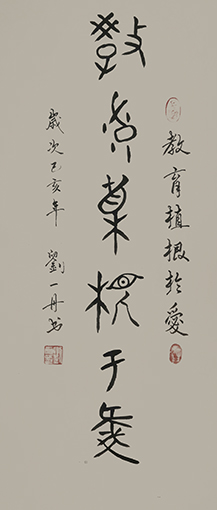 教育植根於愛
教育植根于愛
歲次己亥年 劉一丹书